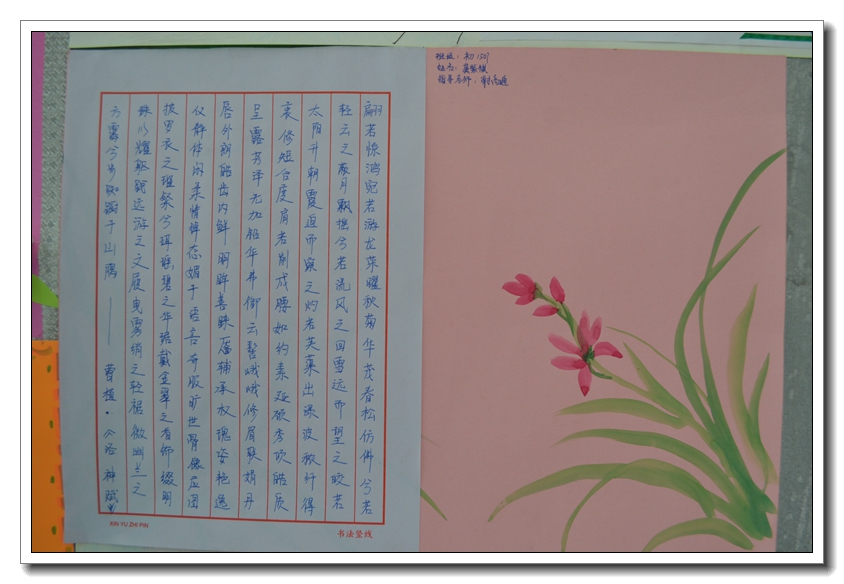 翩若惊鸿宛若游龙荣曜秋菊华茂春松仿佛兮若
轻云之蔽月飘摇兮若流风之回雪远而望之皎若
太阳升朝霞迫而察之灼若芙蕖出渌波秾纤得
衷修短合度肩若削成腰如约素延颈秀项皓质
呈露芳泽无加铅华弗御云髻峨峨修眉联娟丹
唇外朗皓齿内鲜明眸善睐靥辅承权瑰姿艳逸
仪静体闲柔情绰态媚于语言奇服旷世骨像应图
披罗衣之璀粲兮珥瑶碧之华琚戴金翠之首饰缀明
珠以耀躯践远游之文履曳雾绡之轻裾微幽兰之
方霭兮步踟蹰于山隅——曹植·《洛神赋》
XIN YU ZHI PIN
书法竖线
班级：初
姓名：
指导老师：